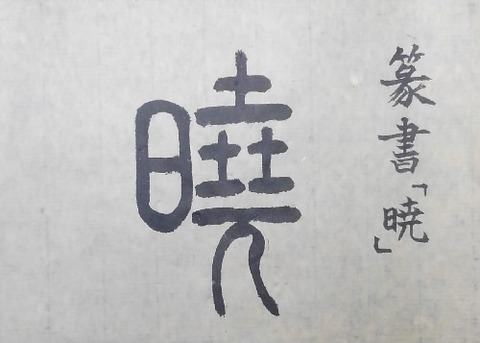 篆書「暁」
曉